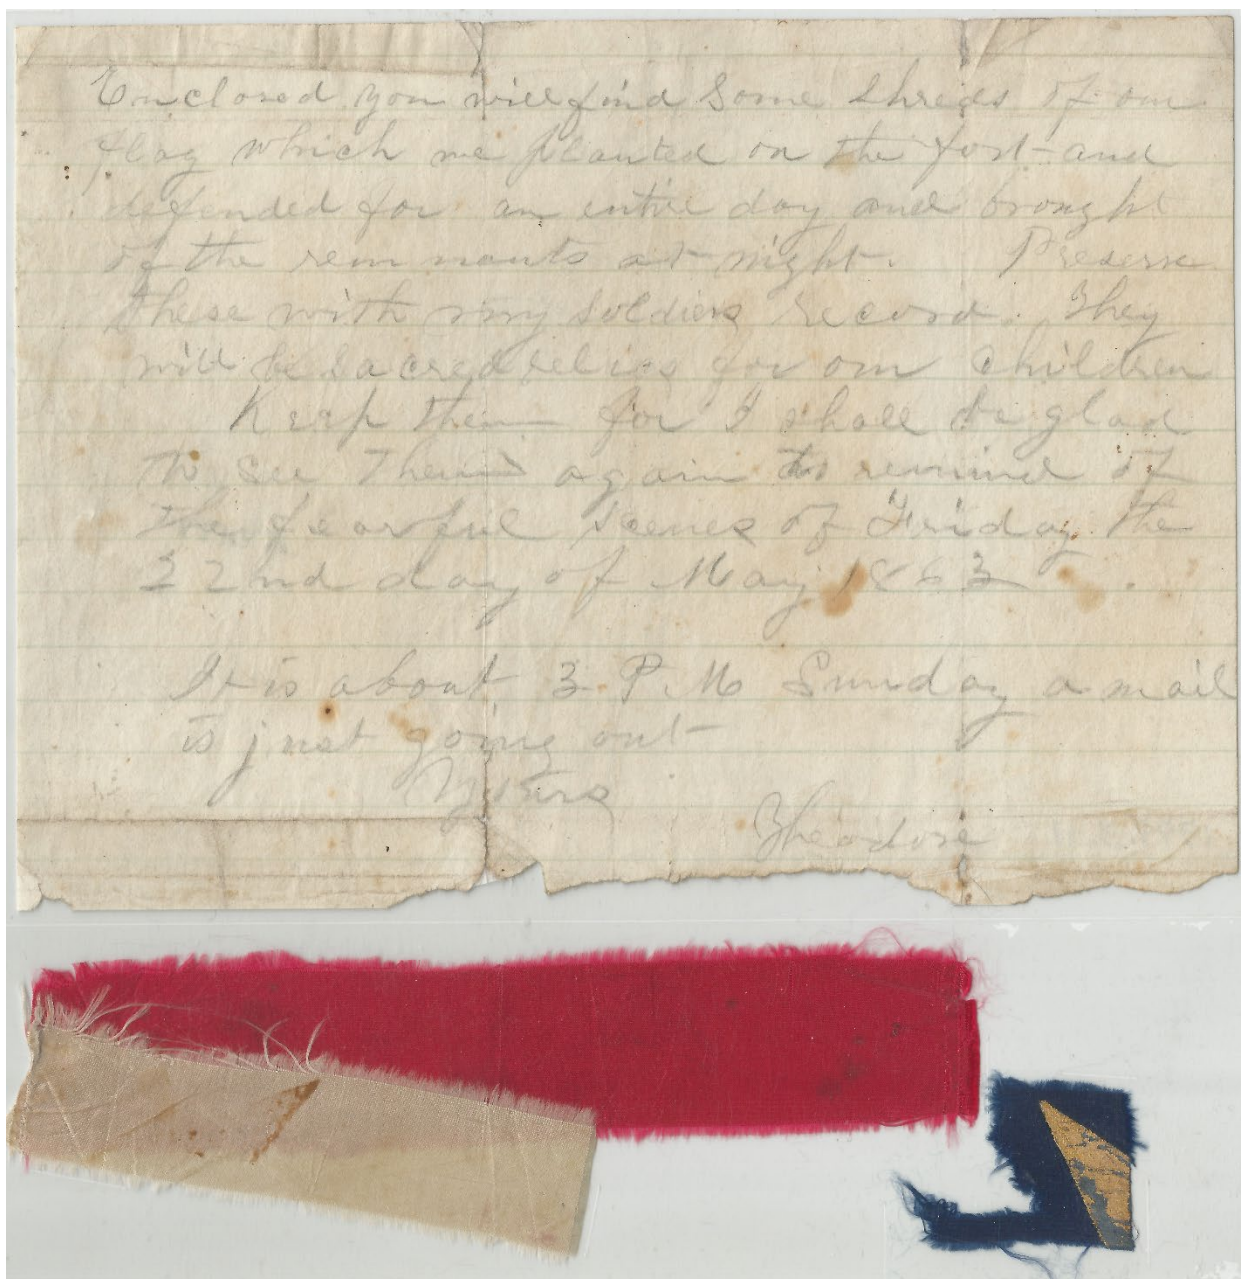 Enclosed you will find Some Shreds of our
flag which we planted on the fort and
defended for an entire day and brought
of the remnants at night. Preserve
these with my soldiers record. They
will be Sacred relics for our children
Keep them for I shall be glad
to see them again to remind of
the fearful scenes of Friday the
22nd day of May 1863.
It is about 3 P.M Sunday a mail
is just going out
Yours
Theodore